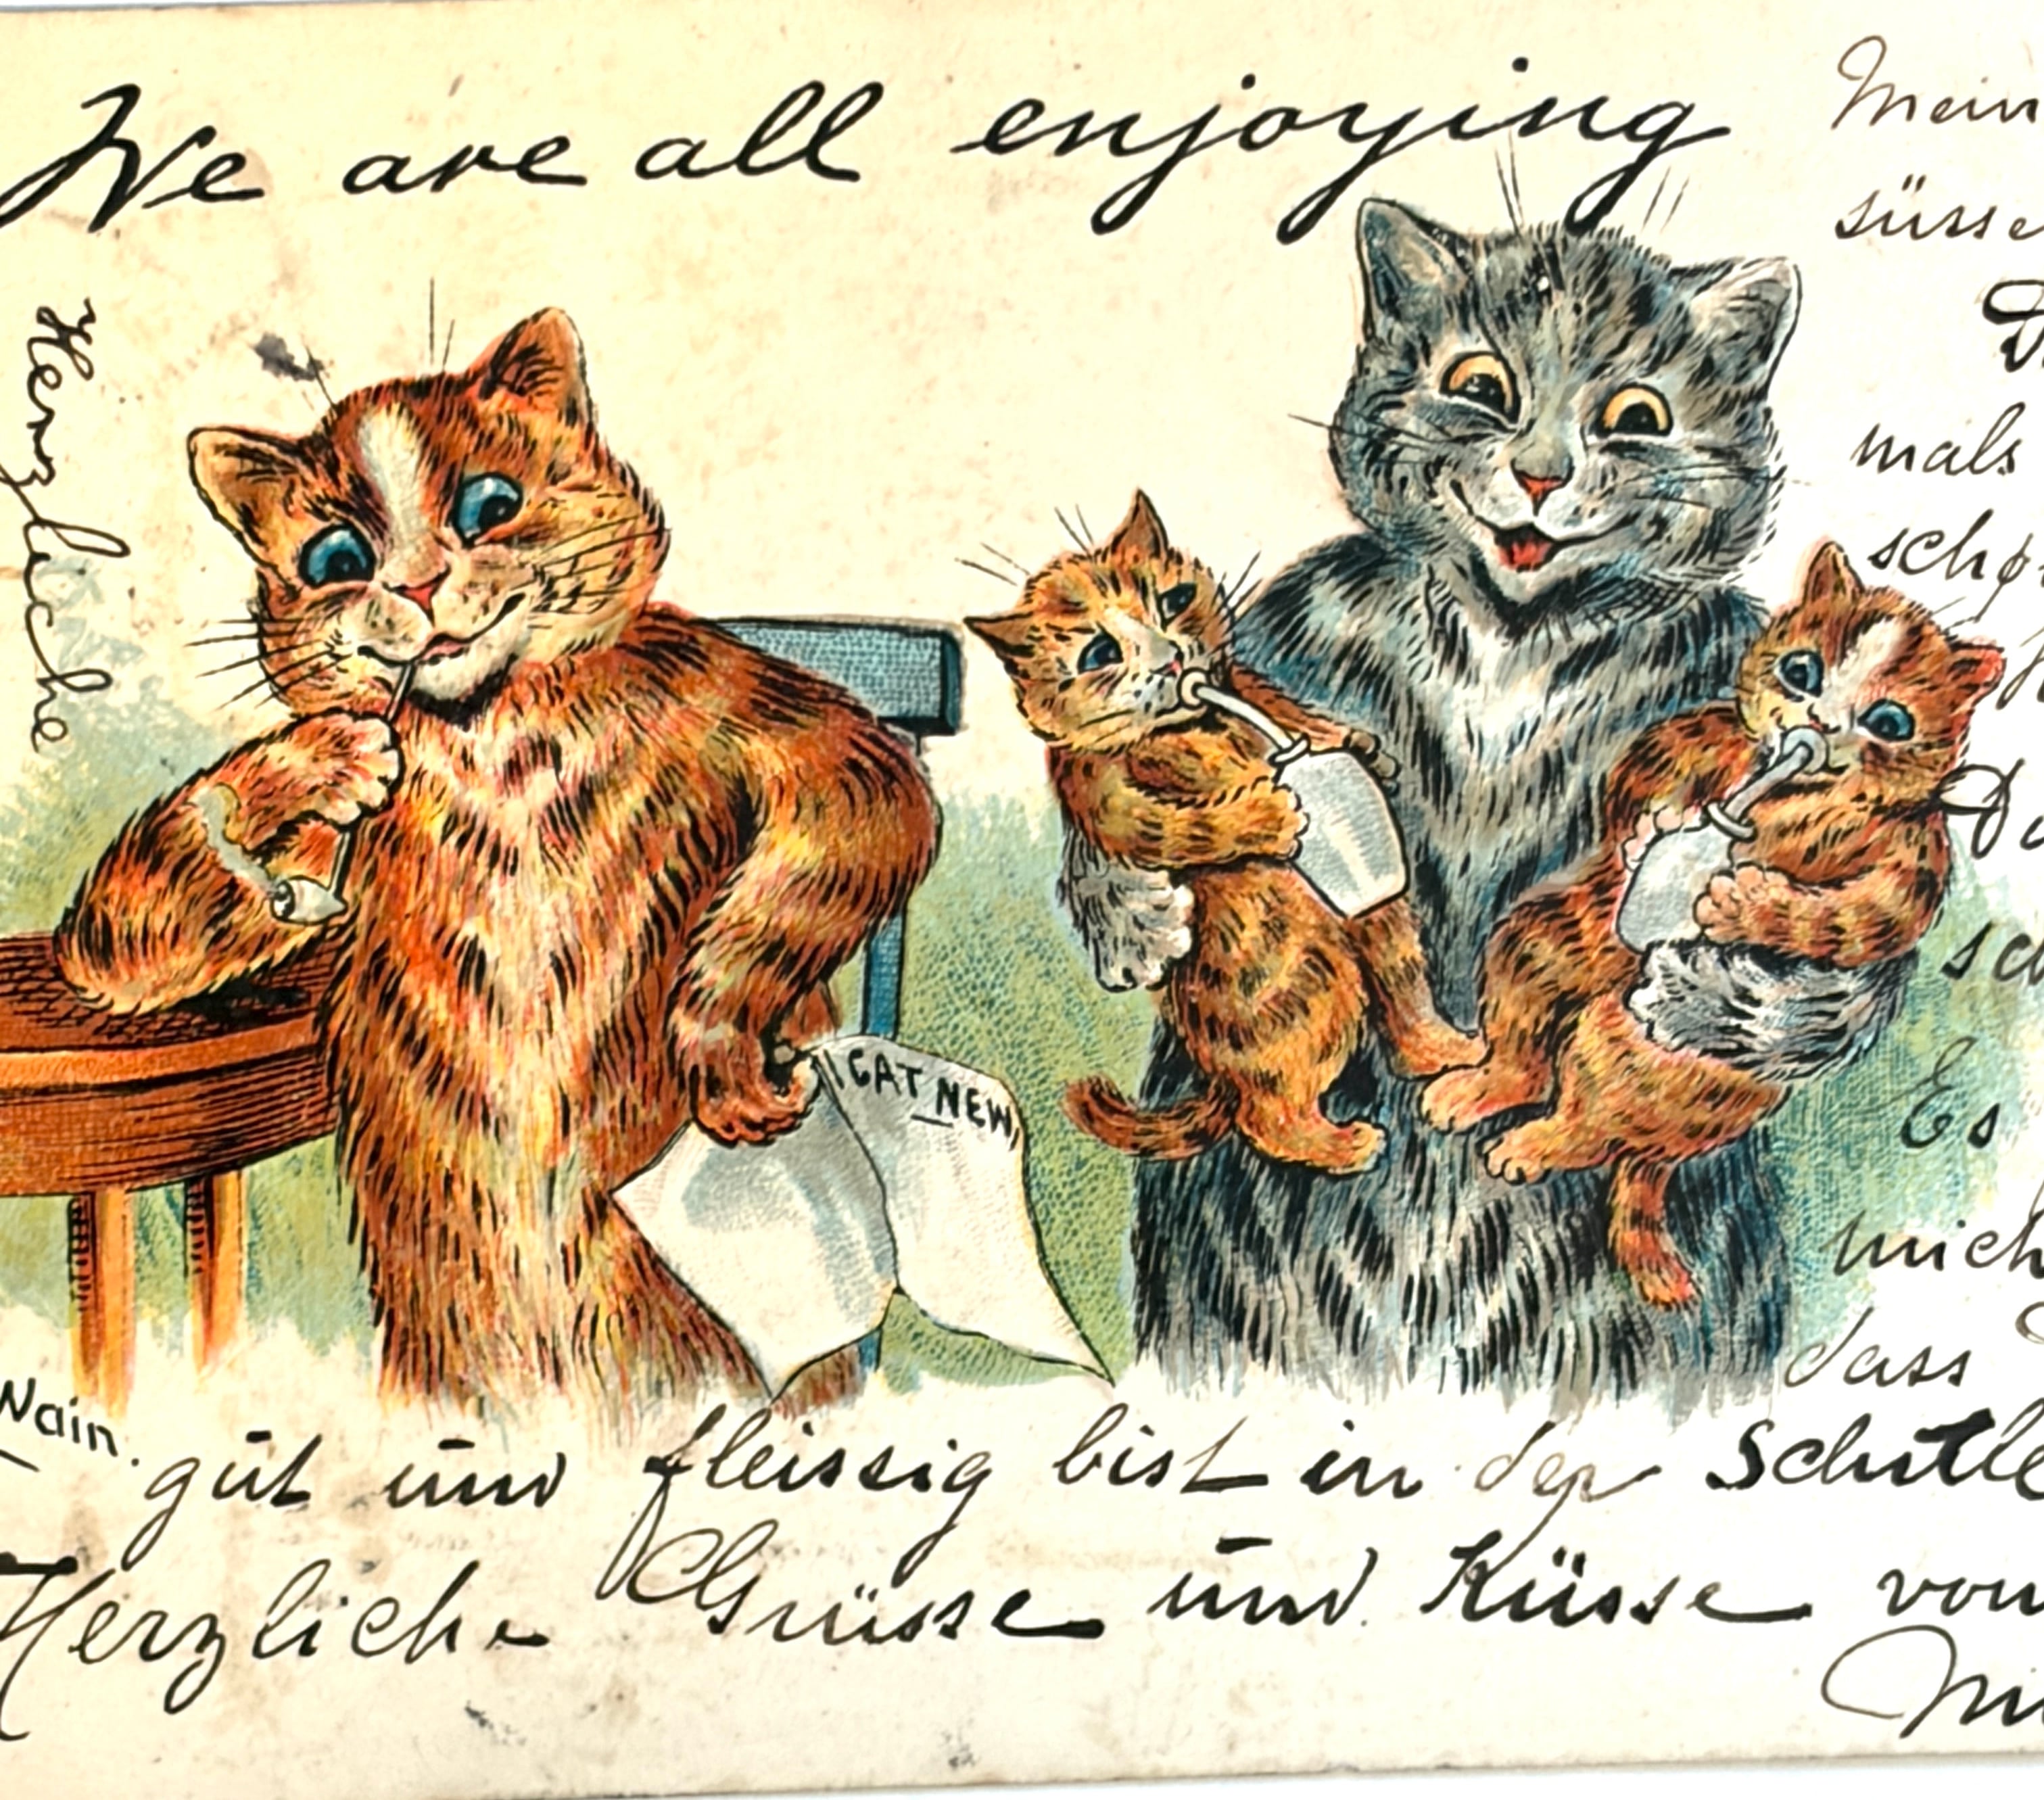 We are all enjoying
Herzliche
Mein
süsse
mals
CAT NEW
Es
mich
dass
Wain.
gut und fleissig bist in der Schule
Herzliche Grüsse und Küsse von